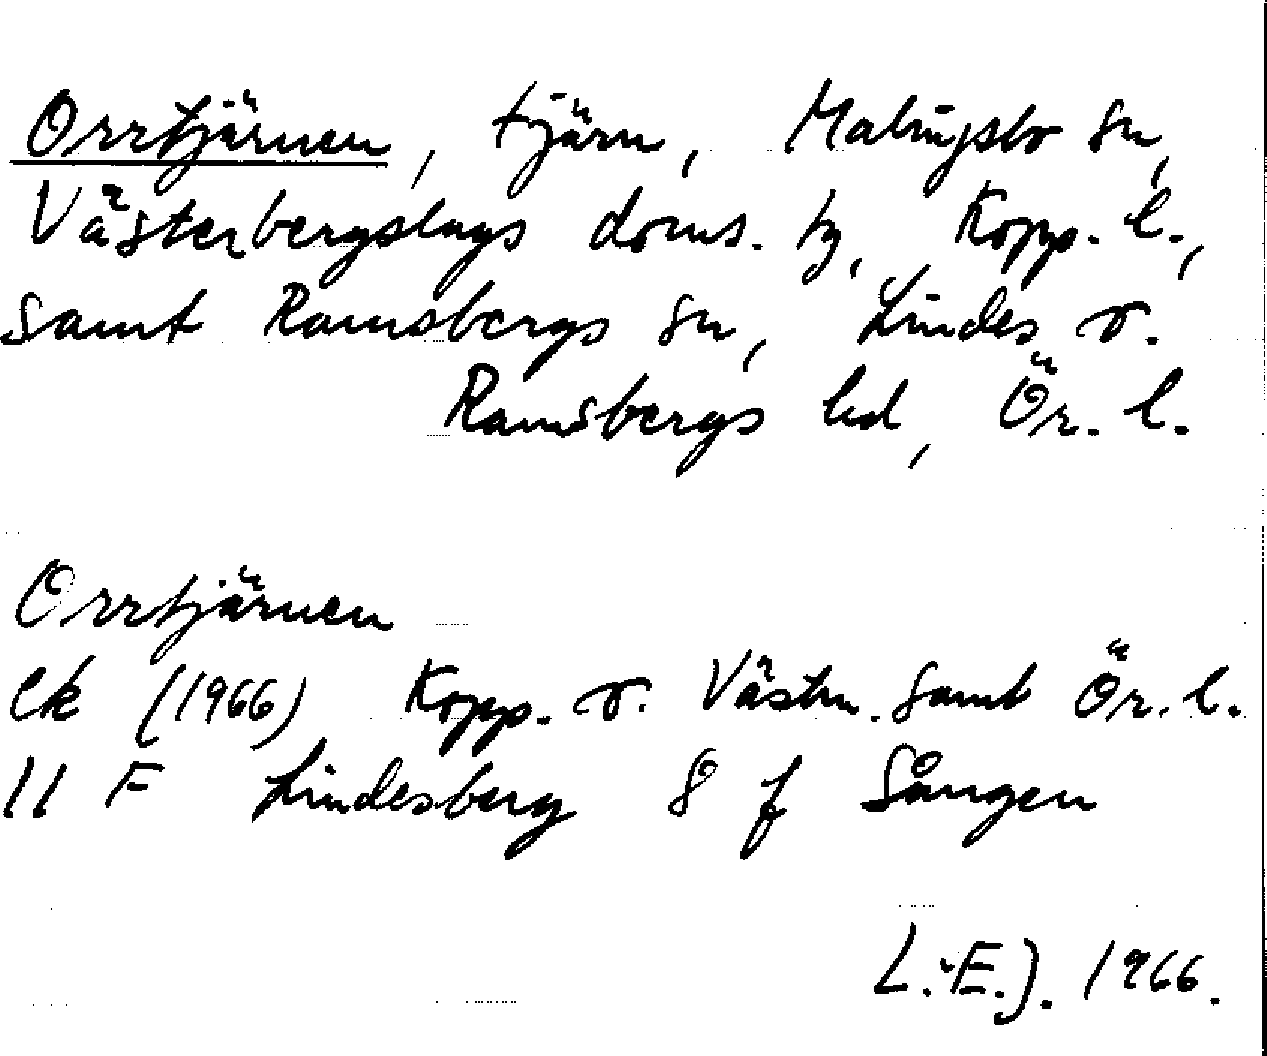 Orrtjärnen, tjärn, Malingsbo sn,
Västerbergslags doms. tg, Kopp. l.,
samt Ramsbergs sn, Lindes o.
Ramsbergs hd, Ör. l.
Orrtjärnen
Ek (1966) Kopp. o. Västm. samt Ör. l.
11 F Lindesberg 8 f Sången
L.-E.J. 1966.